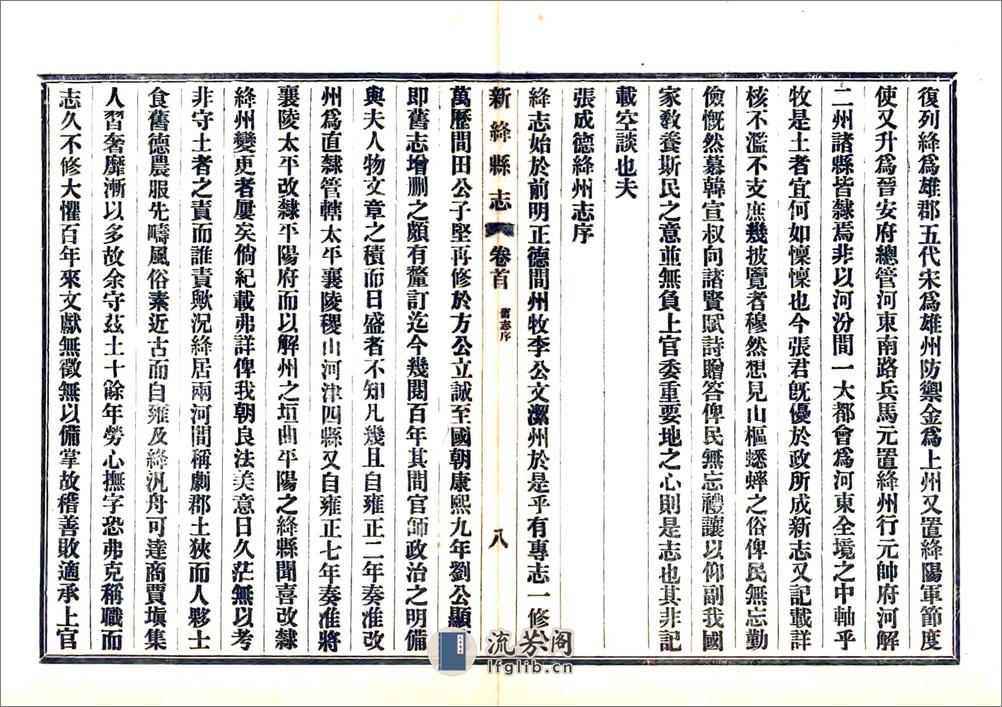 復列絳爲雄郡五代宋爲雄州防禦金爲上州又置絳陽軍節度
使又升爲晉安府總管河東南路兵馬元置絳州行元帥府河解
二州諸縣皆隸焉非以河汾間一大都會爲河東全境之中軸乎
牧是土者宜何如懍懍也今張君旣優於政所成新志又記載詳
核不濫不支庶幾披覽者穆然想見山樞蟋蟀之俗俾民無忘勤
儉慨然慕韓宣叔向諸賢賦詩贈答俾民無忘禮讓以仰副我國
家敎養斯民之意並無負上官委重要地之心則是志也其非記
載空談也夫
張成德絳州志序
絳志始於前明正德間州牧李公文潔州於是乎有專志一修於
新絳縣志 卷首 舊志序 八
萬歷間田公子堅再修於方公立誠至國朝康熙九年劉公顯
即舊志增删之頗有釐訂迄今幾閱百年其間官師政治之明備
與夫人物文章之積而日盛者不知凡幾且自雍正二年奏准改
州爲直隸管轄太平襄陵稷山河津四縣又自雍正七年奏准將
襄陵太平改隸平陽府而以解州之垣曲平陽之絳縣聞喜改隸
絳州變更者屢矣倘紀載弗詳俾我朝良法美意日久茫無以考
非守土者之責而誰責歟況絳居兩河間稱劇郡土狹而人夥士
食舊德農服先疇風俗素近古而自雍及絳汎舟可達商賈塡集
人習奢靡漸以多故余守茲土十餘年勞心撫字恐弗克稱職而
志久不修大懼百年來文獻無徵無以備掌故稽善敗適承上官
流芳阁
lfglib.cn